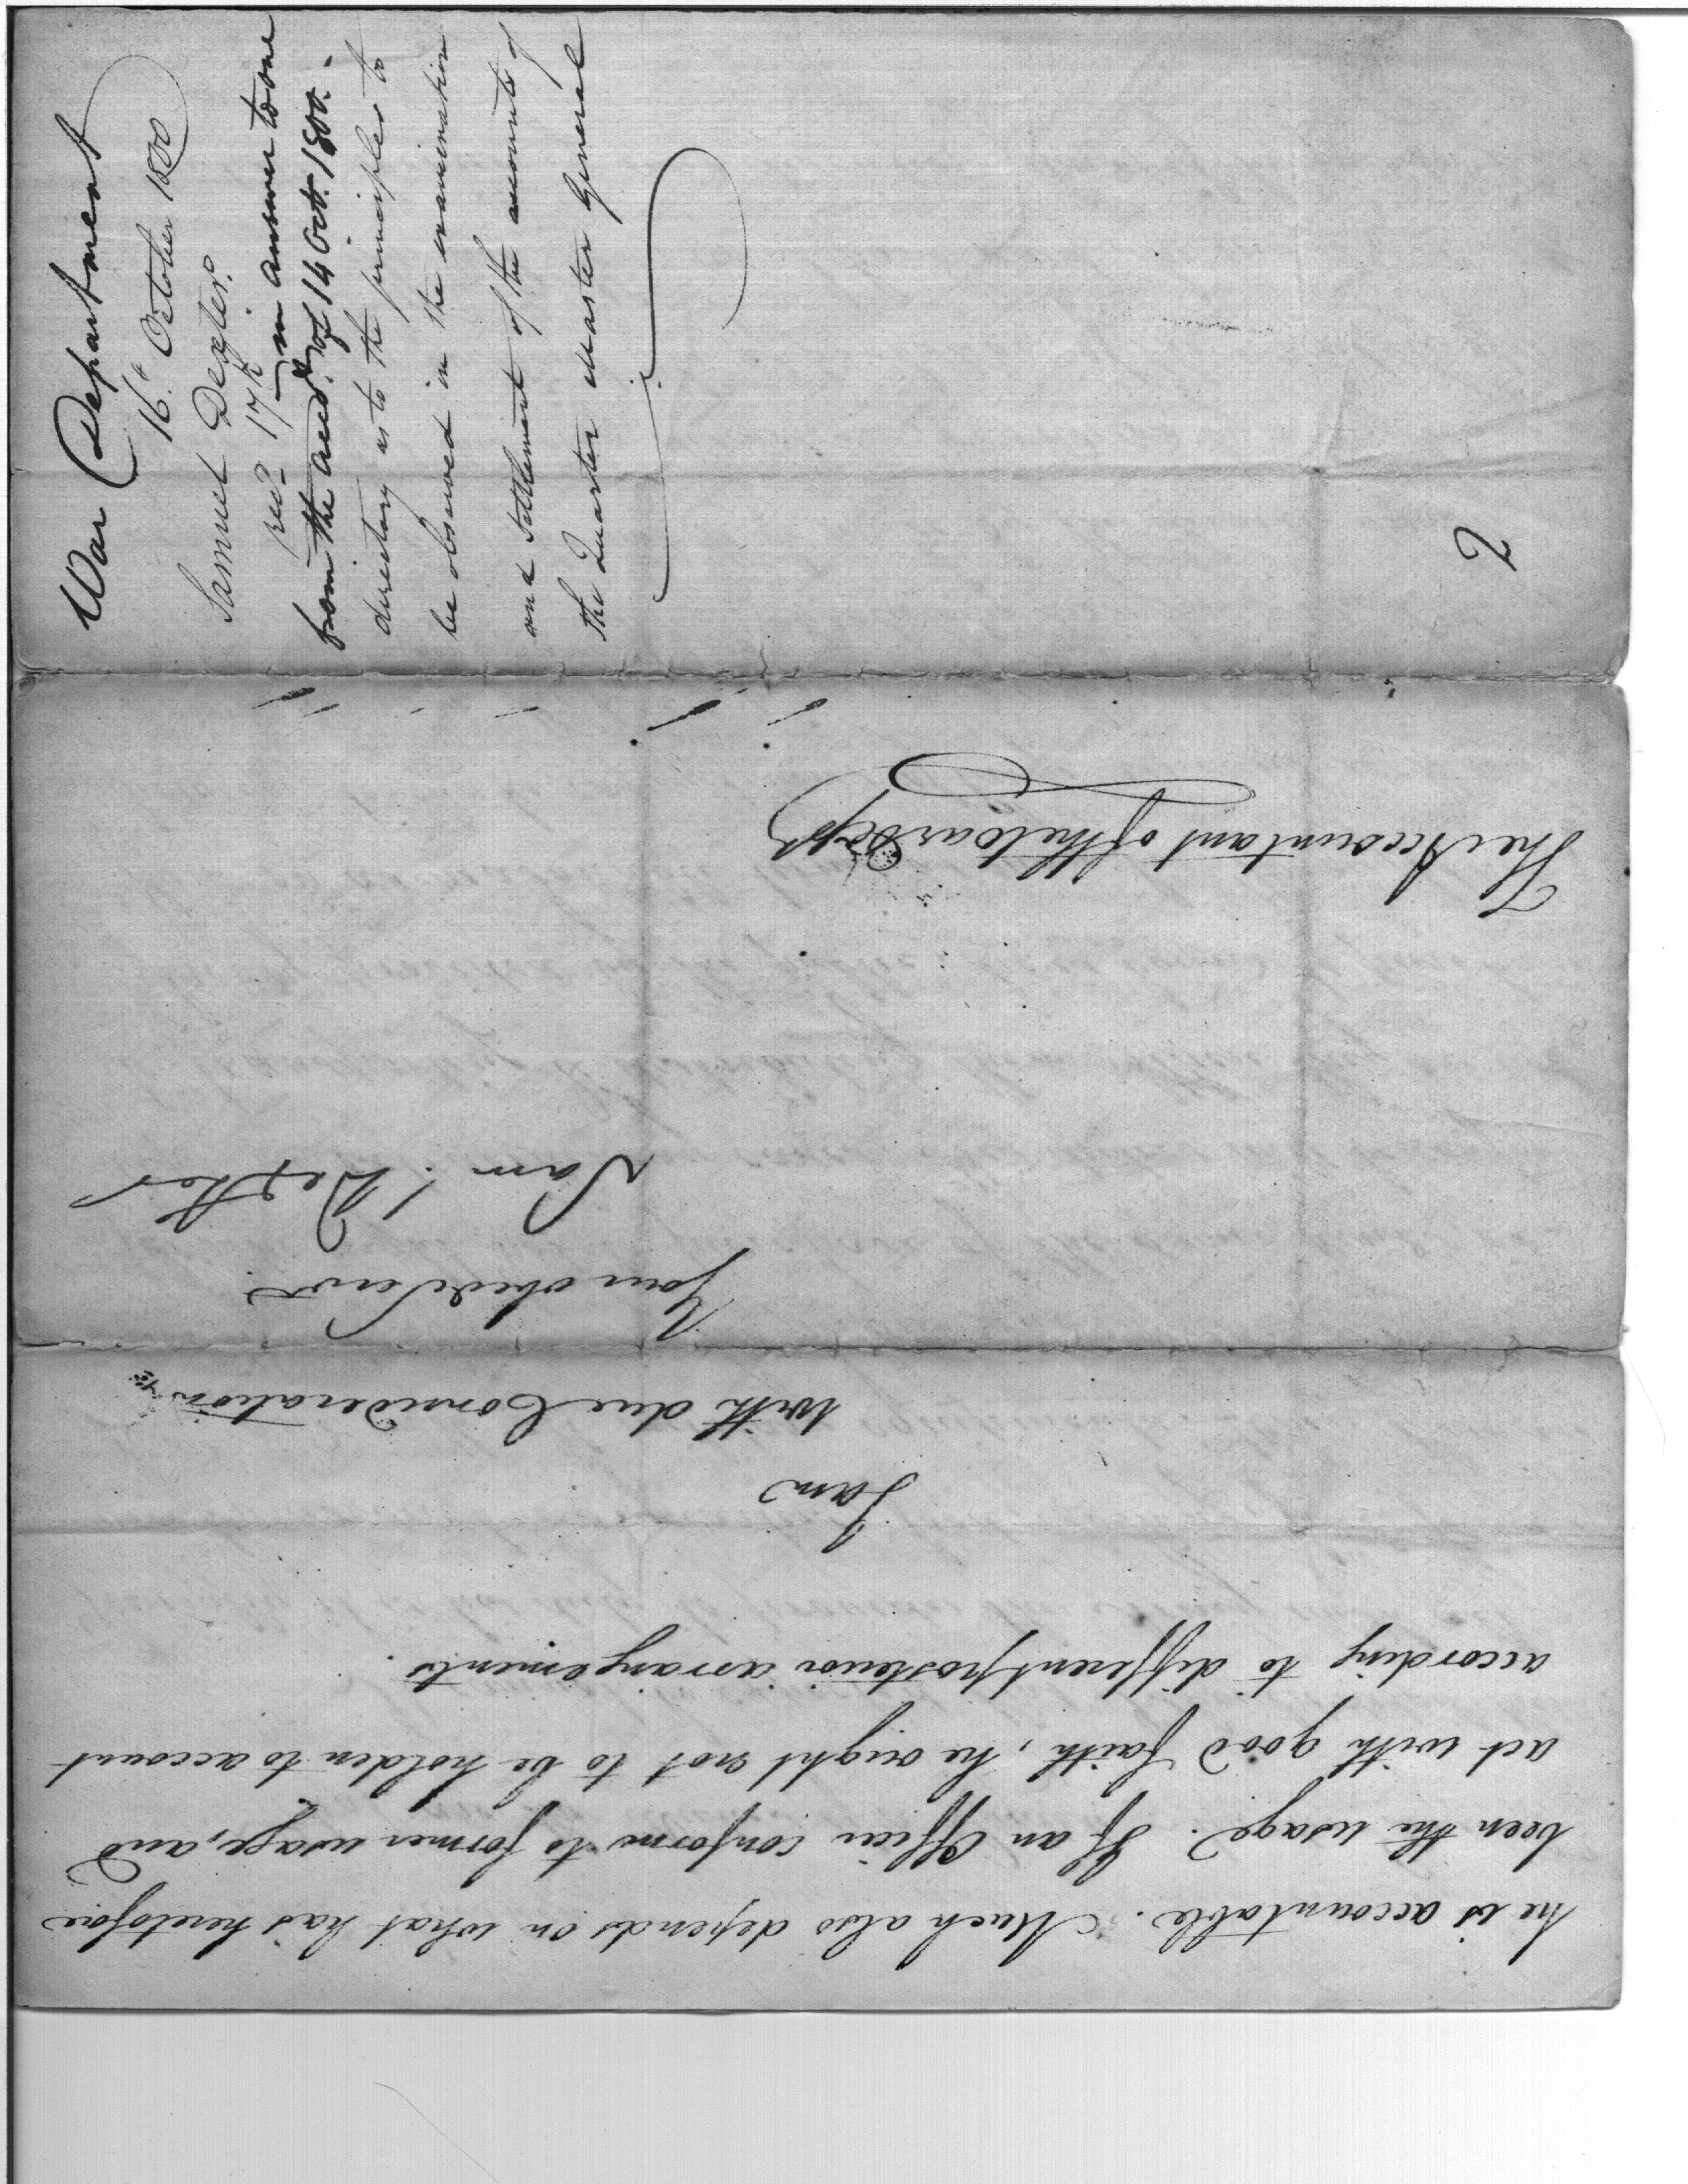 he is accountable. Much also depends on what has heretofore
been the usage. If an Officer conforms to former usage, and
act with good faith, he ought not to be holden to account
according to different posterior arrangements.
I am
with due Consideration
Your obed. Servt.
Sam. Dexter
The Accountant of the War Dept.
War Department
16th October 1800
Samuel Dexter
recd. 17th in answer to one
from the Accot. of 14 Oct. 1800.
directing as to the principles to
be observed in the examination
and settlement of the accounts of
the Quarter Master General
2